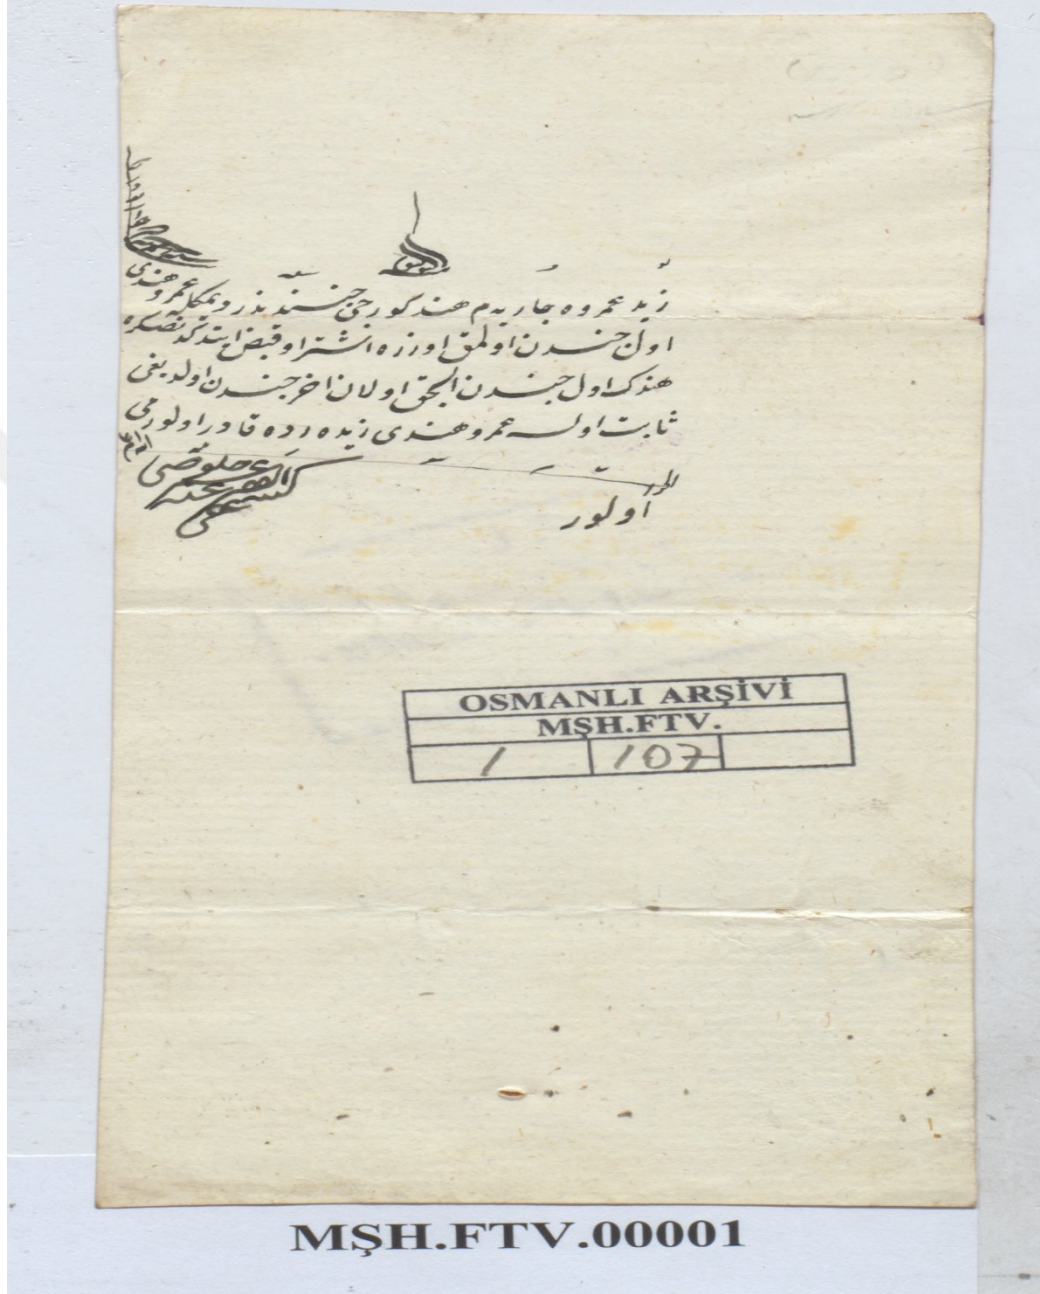 زيد عمروه جاريه م هند كورجى جنسندندر ديمكله عمرو هندى
اول جنسدن اولمق اوزره اشترا و قبض ايتدكدنصكره
هندك اول جنسدن الچق اولان اخر جنسدن اولديغى
ثابت اولسه عمرو هندى زيده رده قادر اولورمى
الجواب
اولور
OSMANLI ARŞİVİ
MŞH.FTV.
1 107
MŞH.FTV.00001